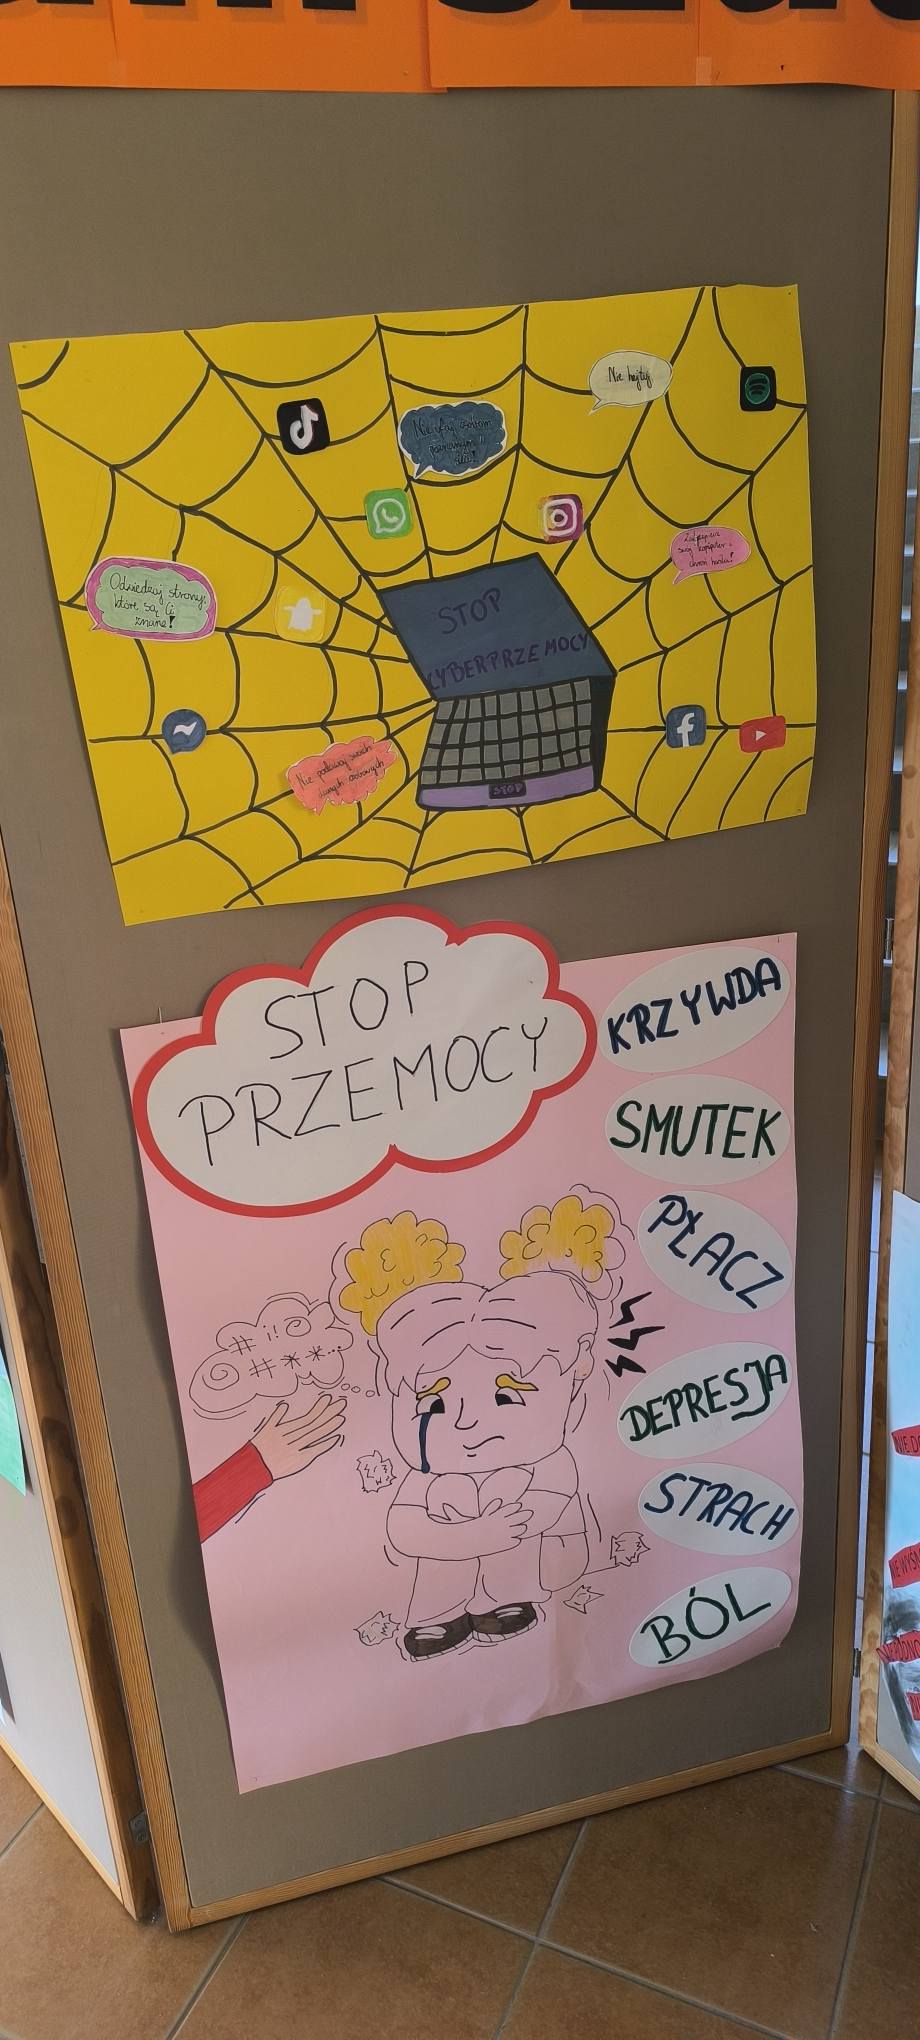 Nie hejtuj
Nie ufaj osobom
poznanym w
sieci!
Zabezpiecz
swój komputer -
chroń hasła!
Odwiedzaj strony,
które są Ci
znane!
STOP
CYBERPRZEMOCY
Nie podawaj swoich
danych osobowych
STOP
STOP
PRZEMOCY
KRZYWDA
SMUTEK
PŁACZ
# i!@
@ #**...
DEPRESJA
STRACH
BÓL